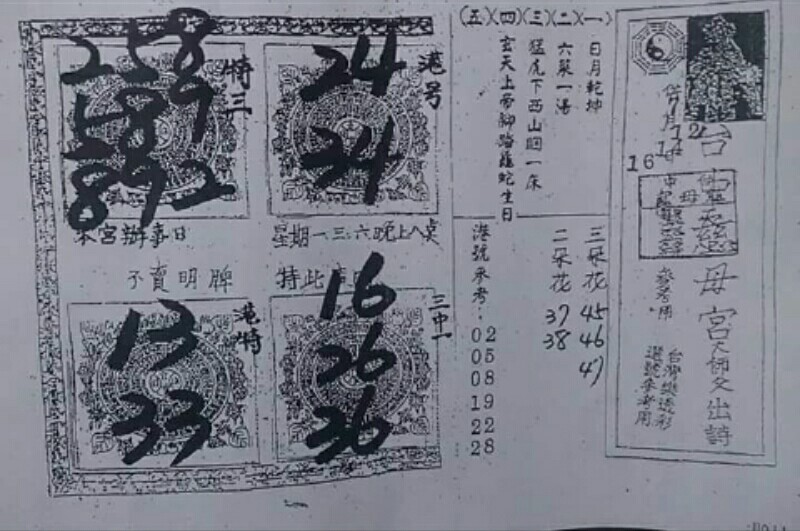 258
587
872
特三
24
34
港号
本宮辦事日
星期一三六晚上八点
不賣明牌
13
33
港特
16
26
36
三中一
(一)
(二)
(三)
(四)
(五)
日月乾坤
六菜一湯
猛虎下西山困一床
玄天上帝腳踏龜蛇生日
三朵花 45 46 47
二朵花 37 38
港號參考:
02
05
08
19
22
28
7月12
16
靈母宮天師父出詩
參考用
台灣樂透彩
選號參考用